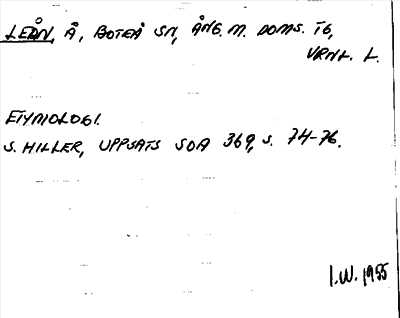 LEÅN, Å, BOTEÅ SN, ÅNG. M. DOMS. TG,
VRNL. L.
ETYMOLOGI.
S. HILLER, UPPSATS SOA 369, S. 74-76.
I.W. 1955